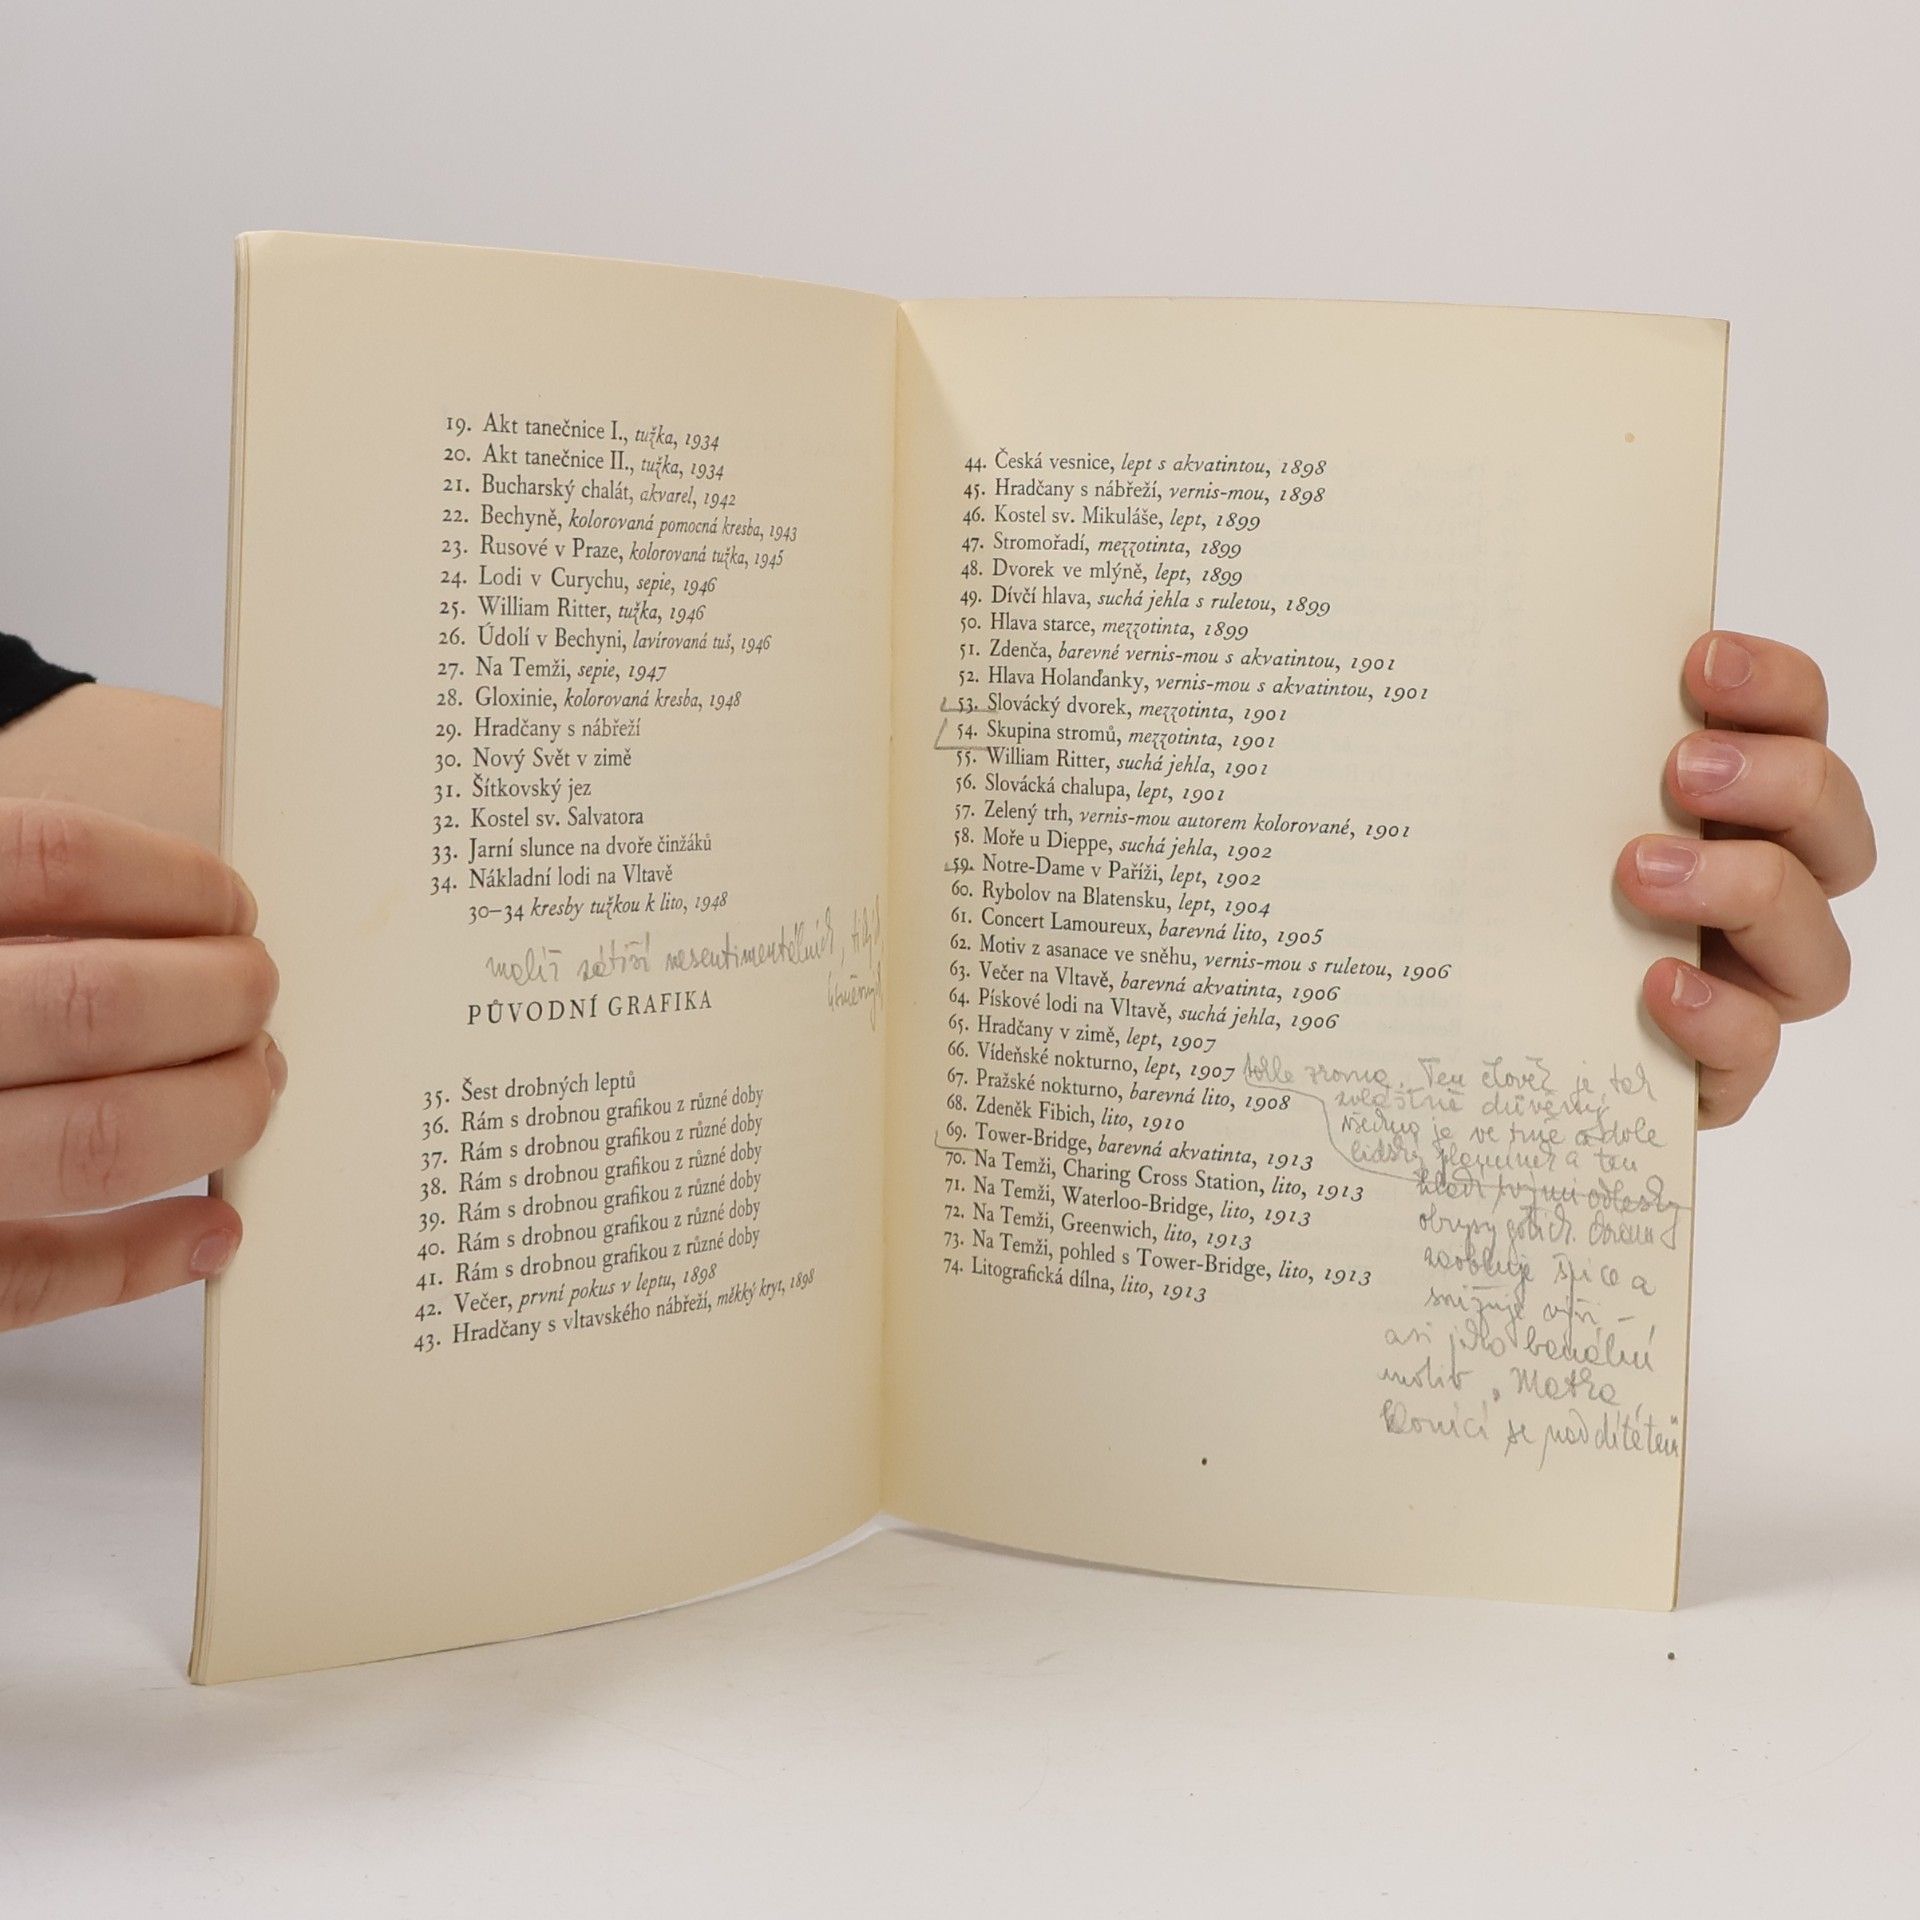 19. Akt tanečnice I., tužka, 1934
20. Akt tanečnice II., tužka, 1934
21. Bucharský chalát, akvarel, 1942
22. Bechyně, kolorovaná pomocná kresba, 1943
23. Rusové v Praze, kolorovaná tužka, 1945
24. Lodi v Curychu, sepie, 1946
25. William Ritter, tužka, 1946
26. Údolí v Bechyni, lavírovaná tuš, 1946
27. Na Temži, sepie, 1947
28. Gloxinie, kolorovaná kresba, 1948
29. Hradčany s nábřeží
30. Nový Svět v zimě
31. Šítkovský jez
32. Kostel sv. Salvatora
33. Jarní slunce na dvoře činžáků
34. Nákladní lodi na Vltavě
30–34 kresby tužkou k lito, 1948
malíř zátiší nesentimentálních,
PŮVODNÍ GRAFIKA
35. Šest drobných leptů
36. Rám s drobnou grafikou z různé doby
37. Rám s drobnou grafikou z různé doby
38. Rám s drobnou grafikou z různé doby
39. Rám s drobnou grafikou z různé doby
40. Rám s drobnou grafikou z různé doby
41. Rám s drobnou grafikou z různé doby
42. Večer, první pokus v leptu, 1898
43. Hradčany s vltavského nábřeží, měkký kryt, 1898
44. Česká vesnice, lept s akvatintou, 1898
45. Hradčany s nábřeží, vernis-mou, 1898
46. Kostel sv. Mikuláše, lept, 1899
47. Stromořadí, mezzotinta, 1899
48. Dvorek ve mlýně, lept, 1899
49. Dívčí hlava, suchá jehla s ruletou, 1899
50. Hlava starce, mezzotinta, 1899
51. Zdenča, barevné vernis-mou s akvatintou, 1901
52. Hlava Holanďanky, vernis-mou s akvatintou, 1901
53. Slovácký dvorek, mezzotinta, 1901
54. Skupina stromů, mezzotinta, 1901
55. William Ritter, suchá jehla, 1901
56. Slovácká chalupa, lept, 1901
57. Zelený trh, vernis-mou autorem kolorované, 1901
58. Moře u Dieppe, suchá jehla, 1902
59. Notre-Dame v Paříži, lept, 1902
60. Rybolov na Blatensku, lept, 1904
61. Concert Lamoureux, barevná lito, 1905
62. Motiv z asanace ve sněhu, vernis-mou s ruletou, 1906
63. Večer na Vltavě, barevná akvatinta, 1906
64. Pískové lodi na Vltavě, suchá jehla, 1906
65. Hradčany v zimě, lept, 1907
66. Vídeňské nokturno, lept, 1907
67. Pražské nokturno, barevná lito, 1908
68. Zdeněk Fibich, lito, 1910
69. Tower-Bridge, barevná akvatinta, 1913
70. Na Temži, Charing Cross Station, lito, 1913
71. Na Temži, Waterloo-Bridge, lito, 1913
72. Na Temži, Greenwich, lito, 1913
73. Na Temži, pohled s Tower-Bridge, lito, 1913
74. Litografická dílna, lito, 1913
Ten člověk je tak
zvláštně důvěrný,
všechno je ve tmě a dole
lidský plamínek a ten
hladí svými odlesky
obrysy gotich.
zaobluje špice a
snižuje výši –
asi jako banální
motiv „Matka
klonící se nad dítětem